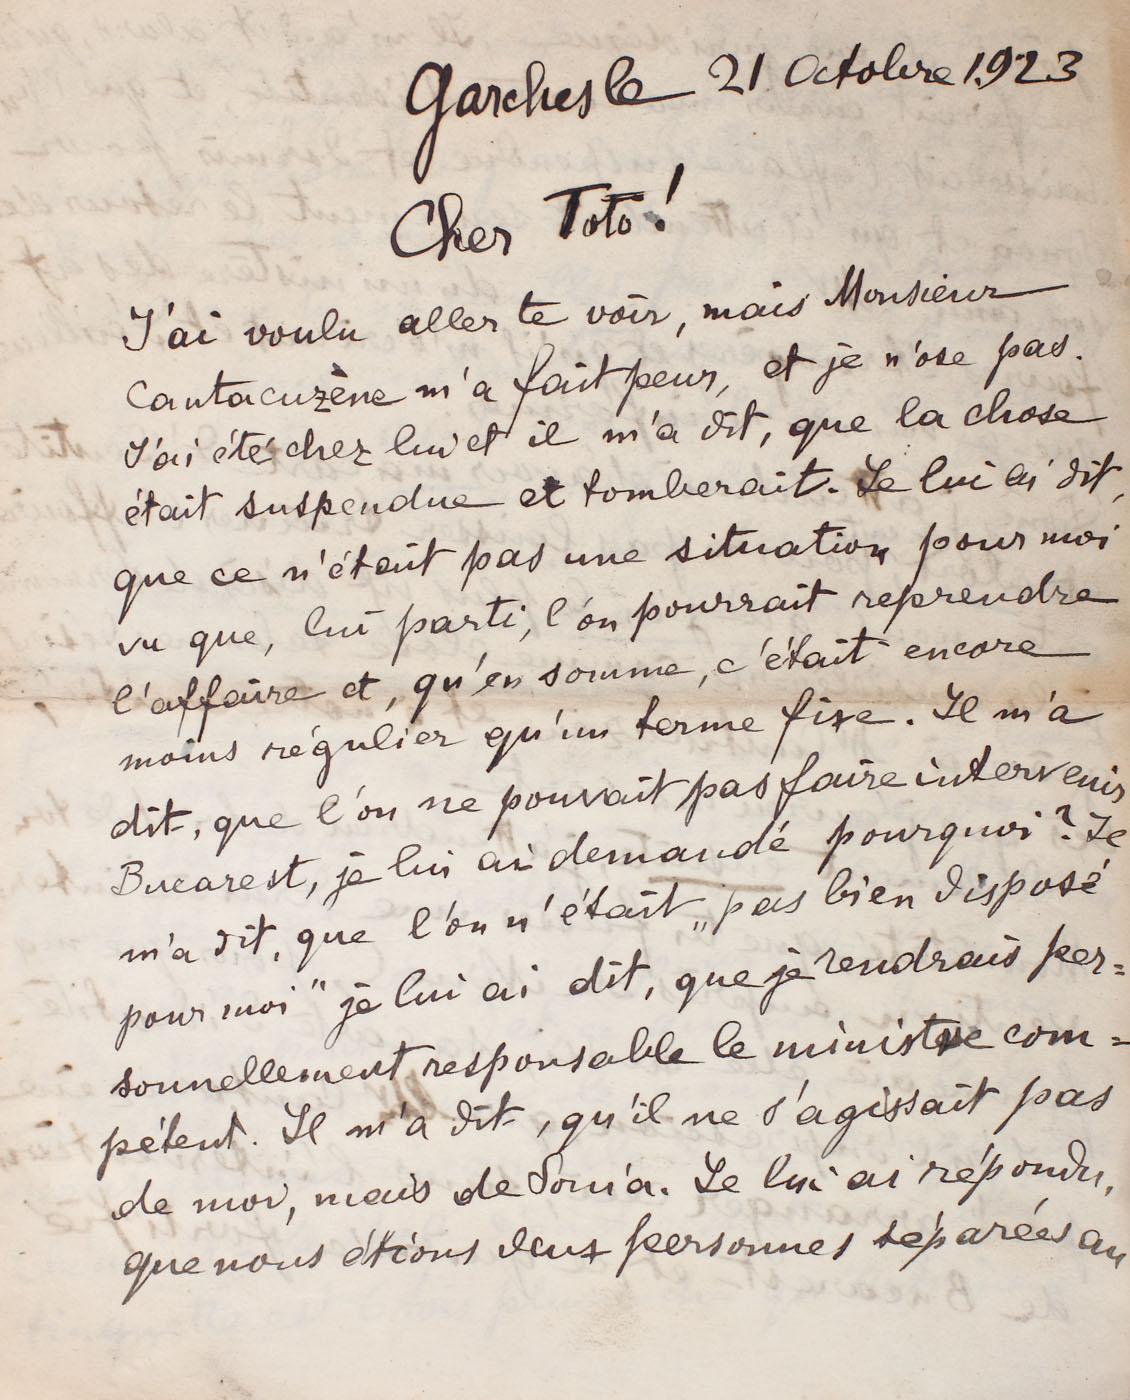 Garches le 21 Octobre 1923
Cher Toto!
J'ai voulu aller te voir, mais Monsieur
Cantacuzène m'a fait peur, et je n'ose pas.
J'ai été chez lui et il m'a dit, que la chose
était suspendue et tomberait. Je lui ai dit,
que ce n'était pas une situation pour moi
vu que, lui parti, l'on pourrait reprendre
l'affaire et, qu'en somme, c'était encore
moins régulier qu'un terme fixe. Il m'a
dit, que l'on ne pouvait pas faire intervenir
Bucarest, je lui ai demandé pourquoi? Il
m'a dit, que l'on n'était „pas bien disposé
pour moi" je lui ai dit, que je rendrais per=
sonnellement responsable le ministre com=
pétent. Il m'a dit, qu'il ne s'agissait pas
de moi, mais de Sonia. Je lui ai répondu,
que nous étions deux personnes séparées au